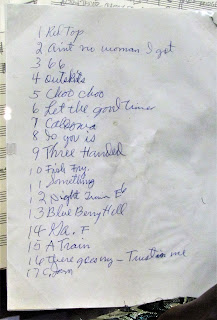 1 Red Top
2 Aint no woman I got
3 66
4 Outskits
5 Choo choo
6 Let the good times
7 Caldonia
8 So you is
9 Three Handed
10 Fish Fry
11 Something
12 Night Train Eb
13 Blue Berry Hell
14 Ga. F
15 A Train
16 there goes my - Trust in me
17 C Jam